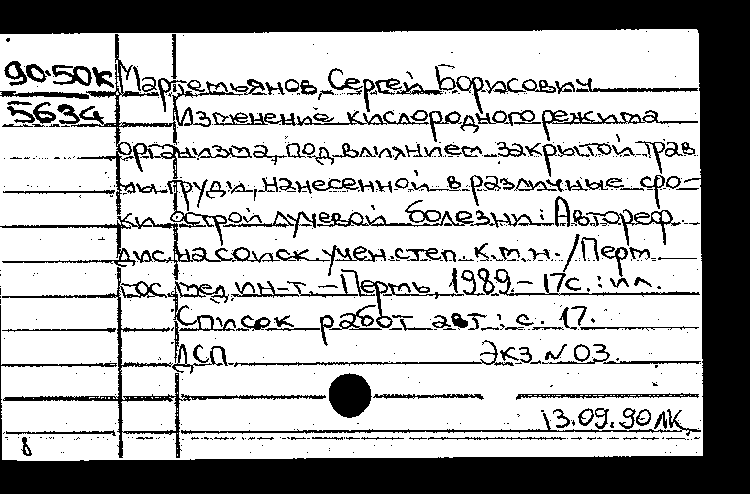 90-50к Мартемьянов, Сергей Борисович
5634 Изменение кислородного режима
организма, под влиянием закрытой трав
мы груди, нанесенной в различные сро-
ки острой лучевой болезни: Автореф.
дис. на соиск. учен. степ. к.м.н. /Перм.
гос. мед. ин-т. – Пермь, 1989. – 17с. : ил.
Список работ авт: с. 17.
ДСП Экз N 03.
13.09.90 ЛК